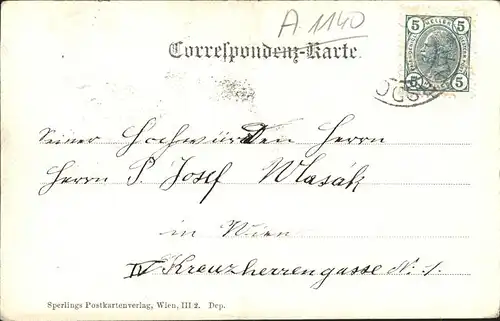 A 1140
Correspondenz-Karte.
5 HELLER 5
5 5
Seiner Hochwürden Herrn
Herrn P. Josef Wlasák
in Wien
IV Kreuzherrengasse Nr. 1.
Sperlings Postkartenverlag, Wien, III 2. Dep.